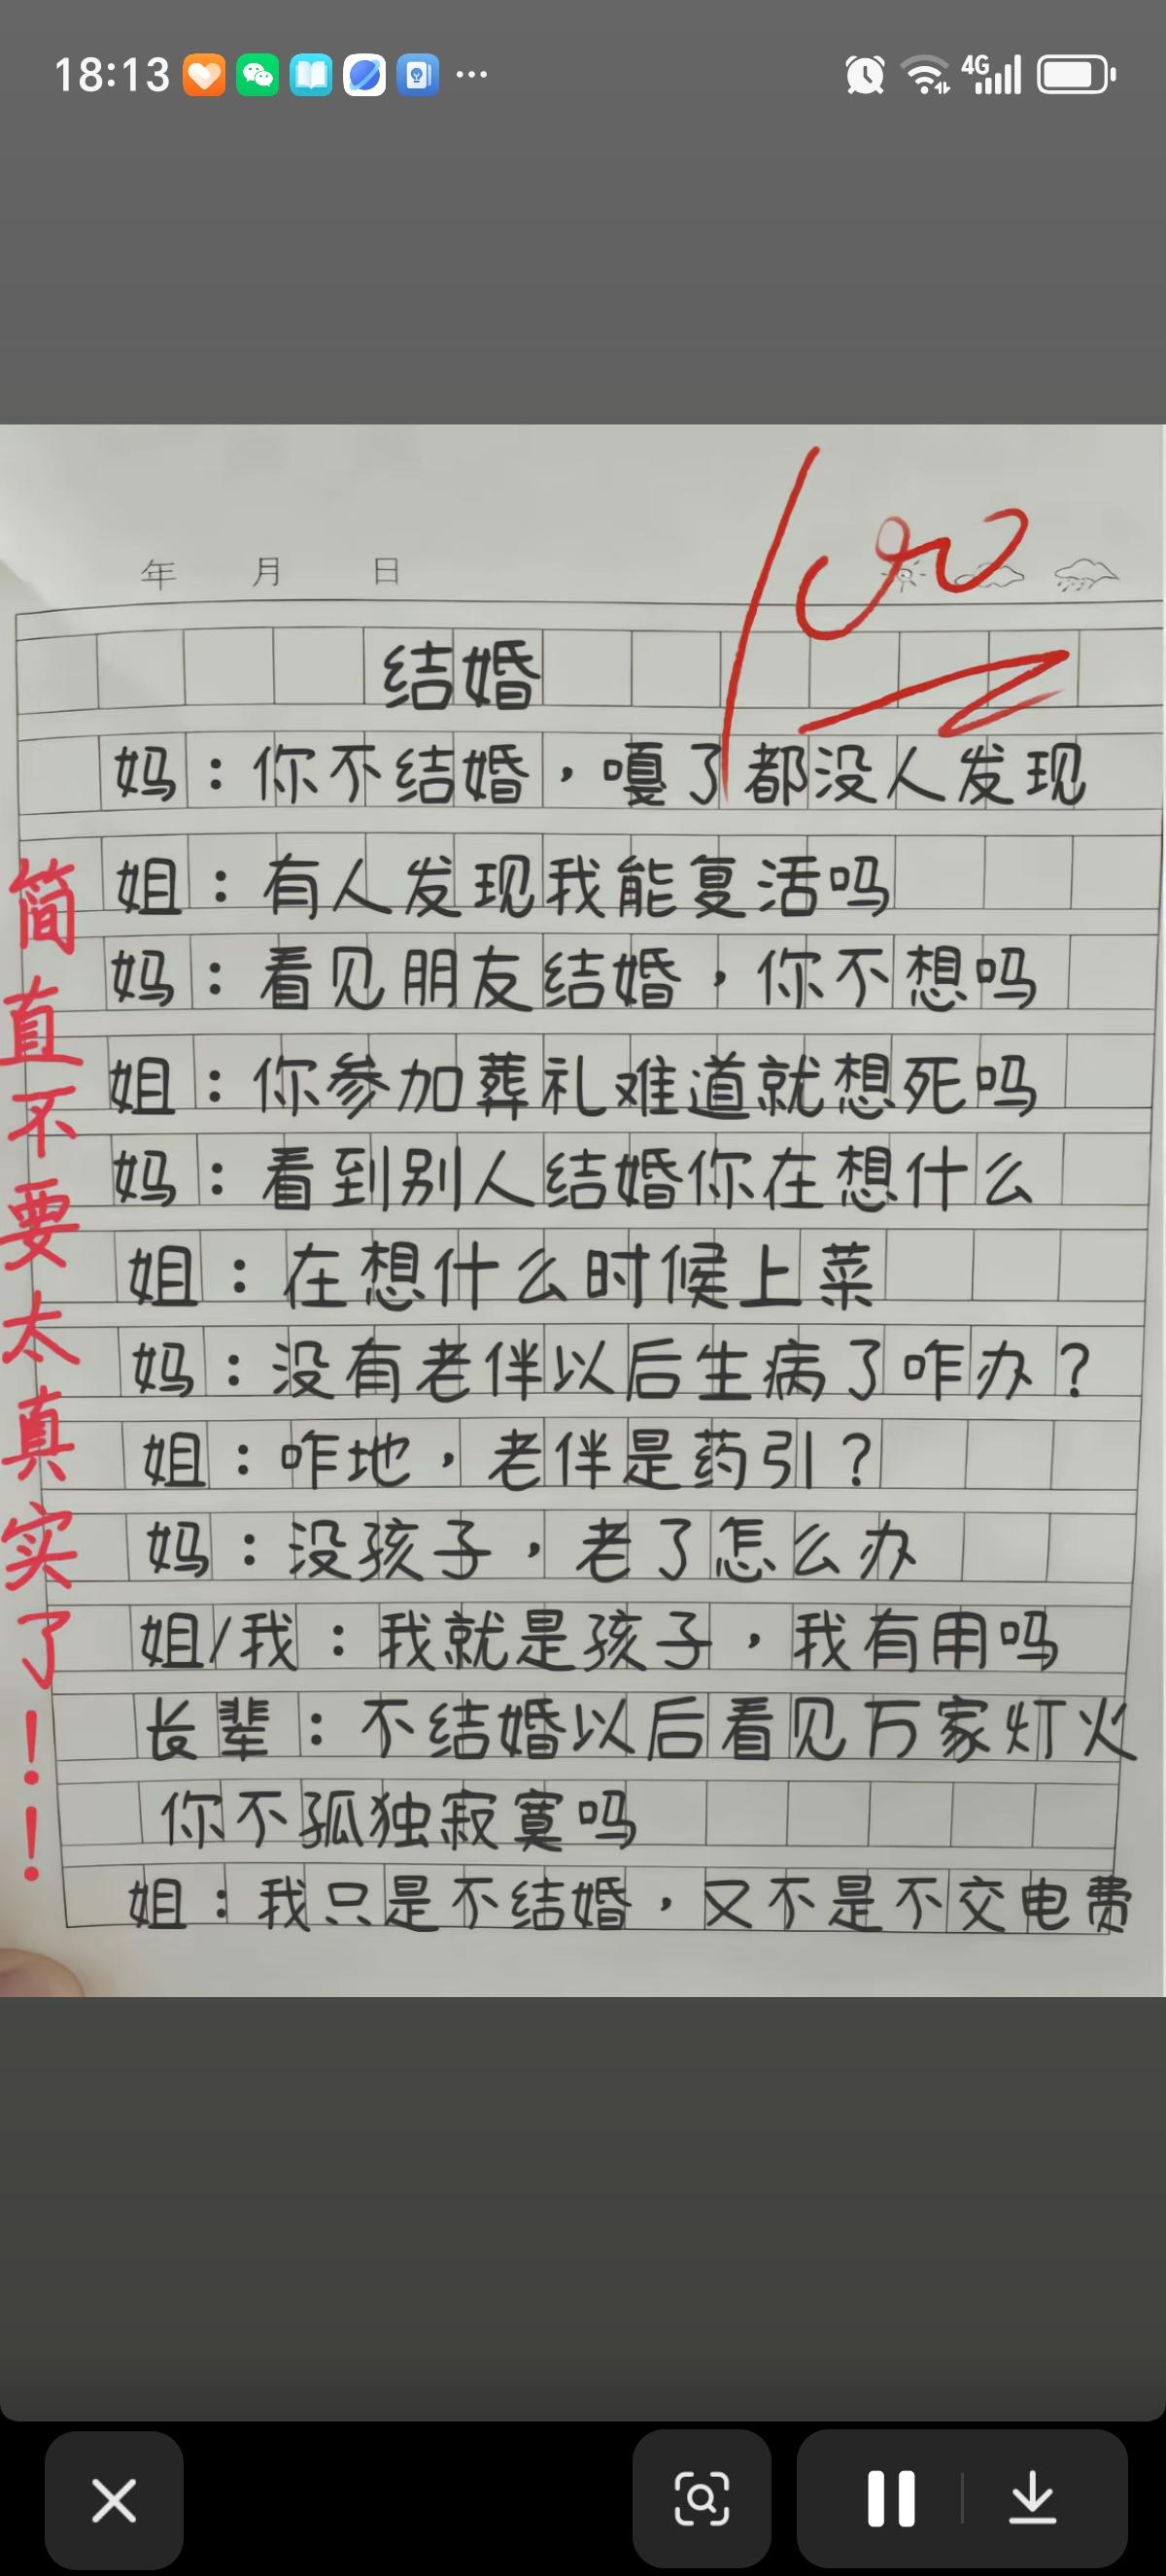 18:13
4G
100
年 月 日
结婚
妈：你不结婚，嘎了都没人发现
姐：有人发现我能复活吗
妈：看见朋友结婚，你不想吗
姐：你参加葬礼难道就想死吗
妈：看到别人结婚你在想什么
姐：在想什么时候上菜
妈：没有老伴以后生病了咋办？
姐：咋地，老伴是药引？
妈：没孩子，老了怎么办
姐/我：我就是孩子，我有用吗
长辈：不结婚以后看见万家灯火
你不孤独寂寞吗
姐：我只是不结婚，又不是不交电费
简直不要太真实了！！